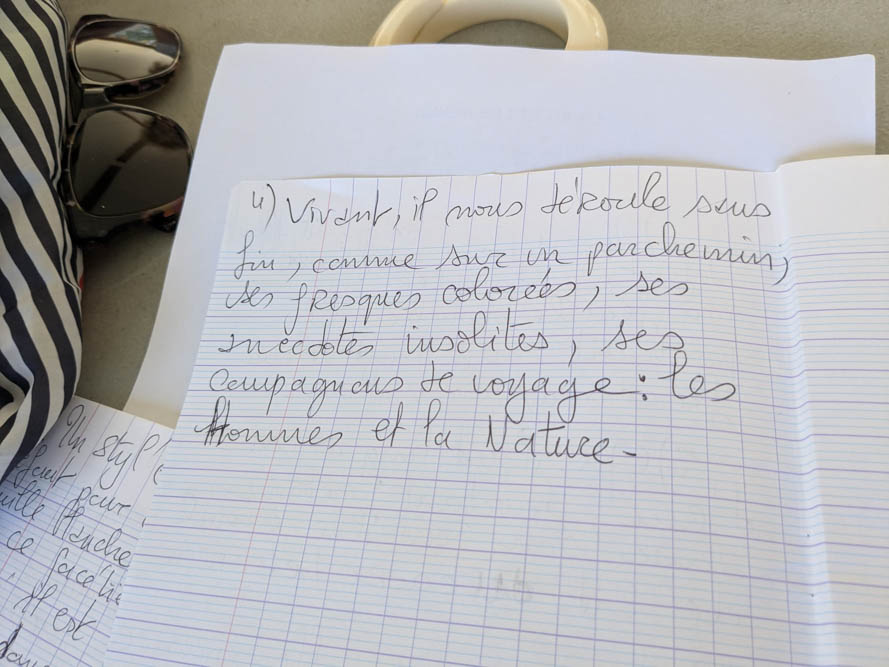 4) Vivant, il nous déroule sans
fin, comme sur un parchemin,
ses fresques colorées, ses
anecdotes insolites, ses
compagnons de voyage : les
Hommes et la Nature.
Un styl
pour
blanche
ce facétie
Il est